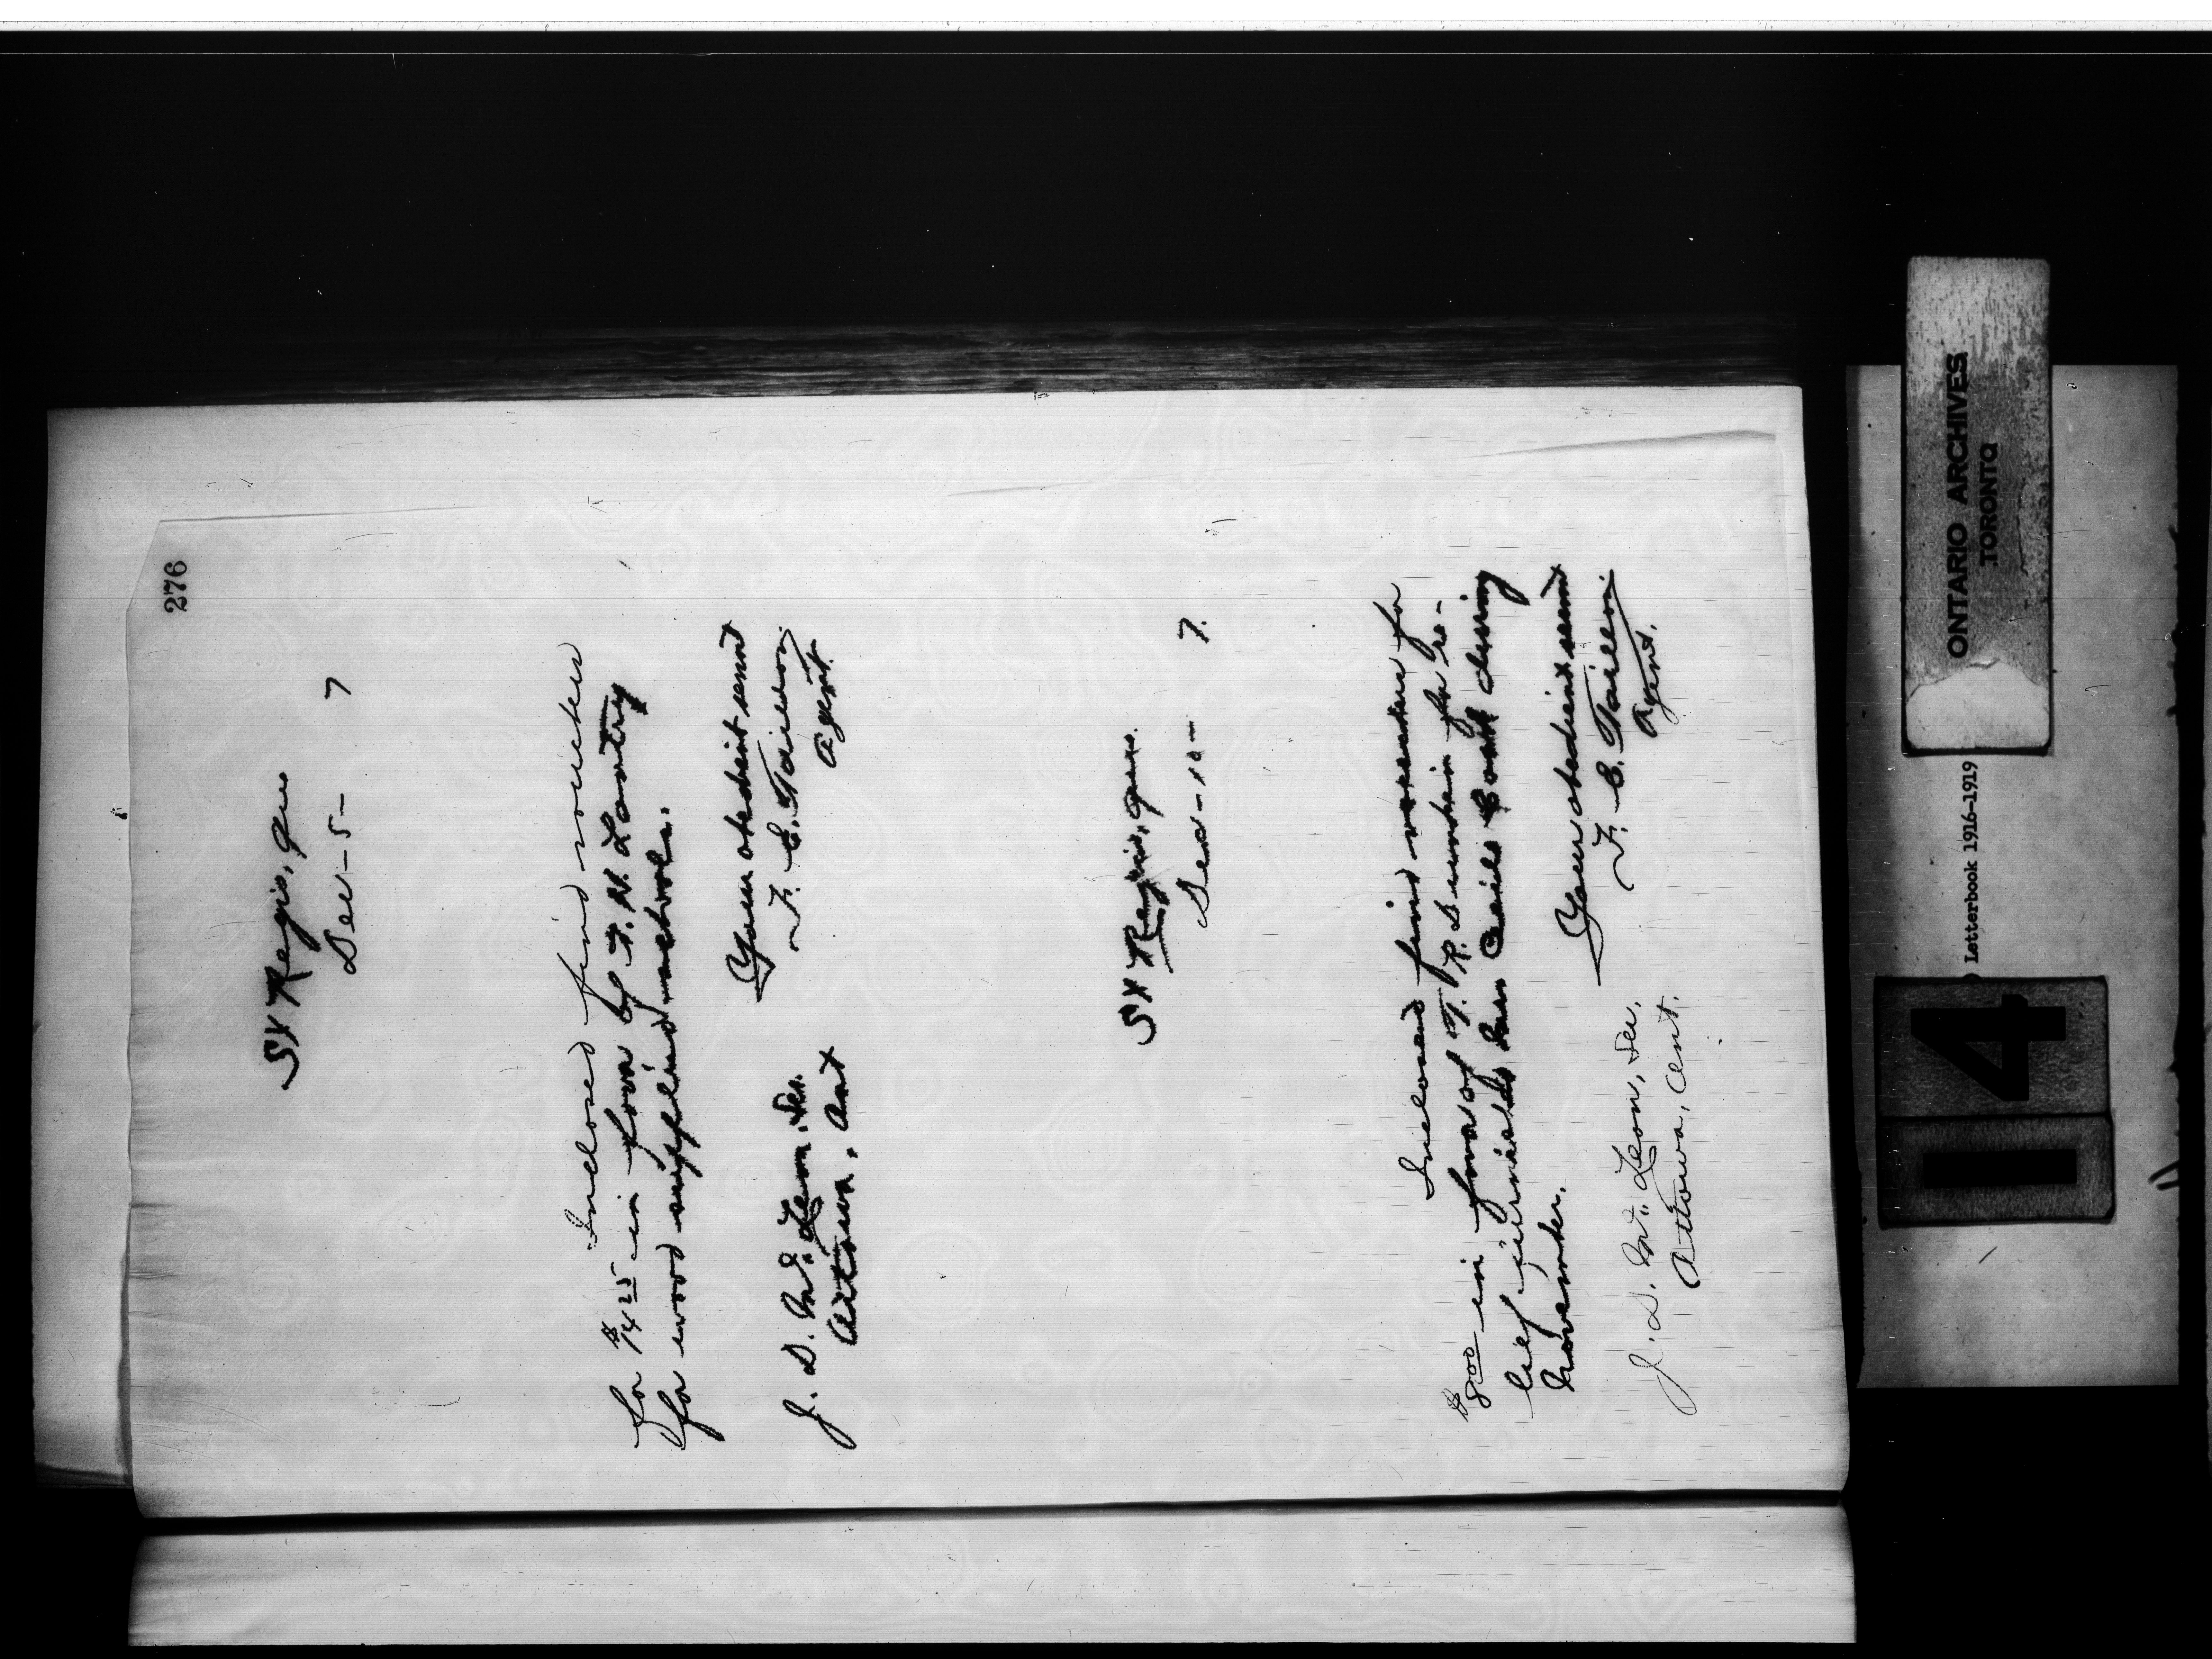 276
St Regis, Que
Dec - 5 - 7
Inclosed find voucher
for $14 25 in favor of F. N. Lantry
for wood supplied schools.
Your obedient servt
F. E. Taillon
Agent.
J. D. McLean, Sec.
Ottawa, Ont
St Regis, Que.
Dec - 10 - 7.
Inclosed find voucher for
$8 00 in favor of T. R. for re-
lief furnished during
November.
Your obedient servt
F. E. Taillon
Agent.
J. D. McLean, Sec,
Ottawa, Ont.
ONTARIO ARCHIVES
TORONTO
Letterbook 1916-1919
14